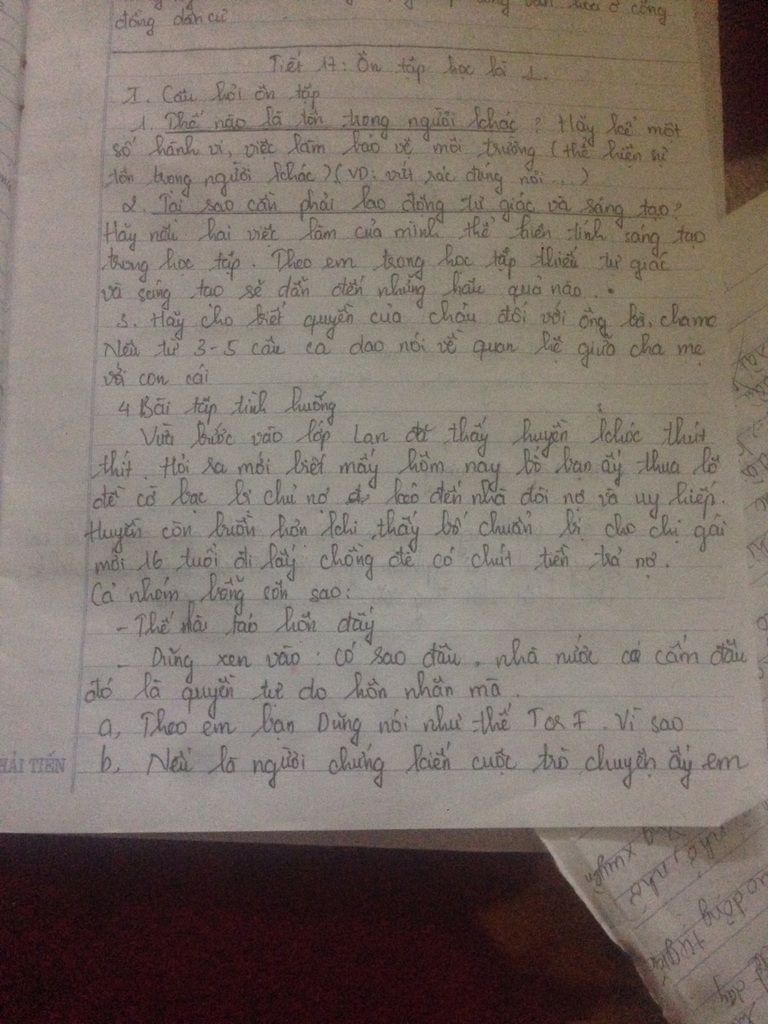 đồng dân cư
Tiết 17: Ôn tập học kì 1.
I. Câu hỏi ôn tập
1. Thế nào là tôn trọng người khác? Hãy kể một
số hành vi, việc làm bảo vệ môi trường (thể hiện sự
tôn trọng người khác) (VD: vứt rác đúng nơi...)
2. Tại sao cần phải lao động tự giác và sáng tạo?
Hãy nêu hai việc làm của mình thể hiện tính sáng tạo
trong học tập. Theo em trong học tập thiếu tự giác
và sáng tạo sẽ dẫn đến những hậu quả nào.
3. Hãy cho biết quyền của cháu đối với ông bà, cha mẹ
Nêu từ 3-5 câu ca dao nói về quan hệ giữa cha mẹ
với con cái
4 Bài tập tình huống
Vừa bước vào lớp Lan đã thấy huyền khóc thút
thít. Hỏi ra mới biết mấy hôm nay bố bạn ấy thua lô
đề cờ bạc bị chủ nợ kéo đến nhà đòi nợ và uy hiếp.
Huyền còn buồn hơn khi thấy bố chuẩn bị cho chị gái
mới 16 tuổi đi lấy chồng để có chút tiền trả nợ.
Cả nhóm bỗng xôn sao:
- Thế là tảo hôn đấy
- Dũng xen vào: Có sao đâu, nhà nước có cấm đâu
đó là quyền tự do hôn nhân mà.
a, Theo em bạn Dũng nói như thế T or F. Vì sao
b, Nếu là người chứng kiến cuộc trò chuyện ấy em
HẢI TIẾN